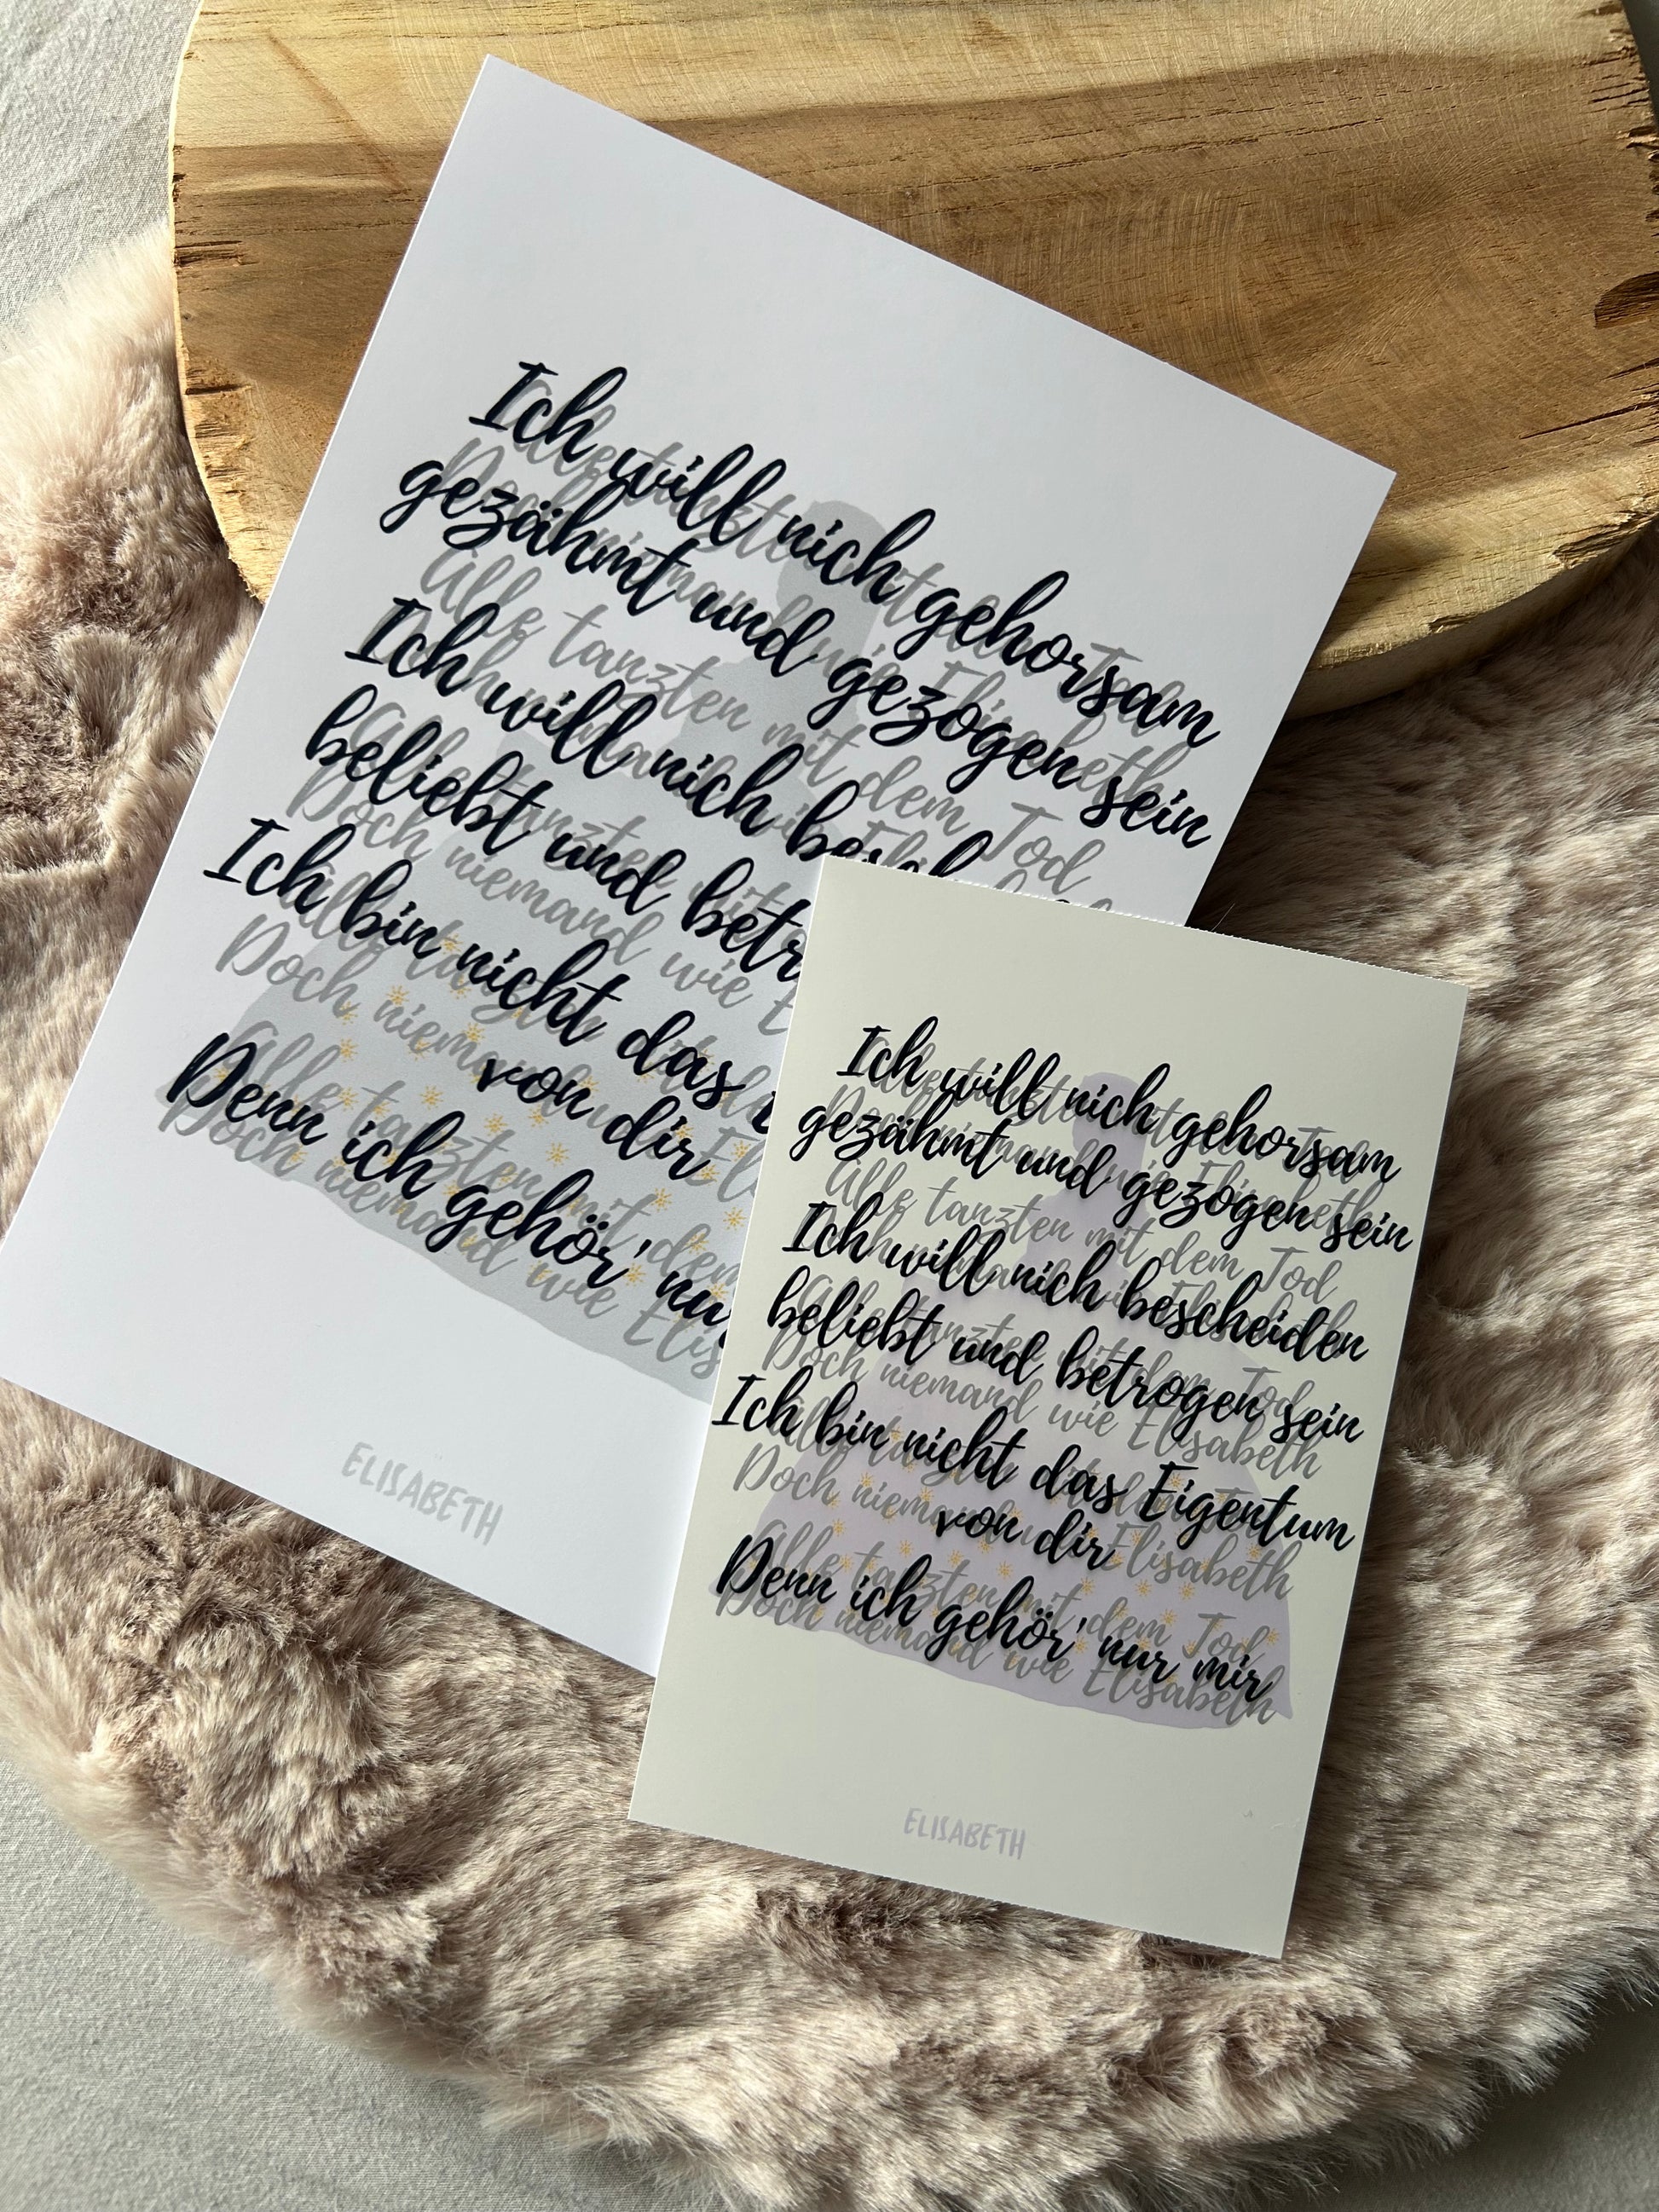 Ich will nich gehorsam
gezähmt und gezogen sein
Alle tanzten mit dem Tod
Ich will nich
beliebt und
Doch niemand wie
Ich bin nicht das
Doch niemand
von dir
Alle tanzten mit dem
Denn ich gehör' nur
Doch niemand wie
ELISABETH
Ich will nich gehorsam
Doch niemand wie Elisabeth
gezähmt und gezogen sein
Alle tanzten mit dem Tod
Ich will nich bescheiden
Alle tanzten mit dem Tod
beliebt und betrogen sein
Doch niemand wie Elisabeth
Ich bin nicht das Eigentum
Doch niemand wie Elisabeth
von dir
Alle tanzten mit dem Tod
Denn ich gehör' nur mir
Doch niemand wie Elisabeth
ELISABETH